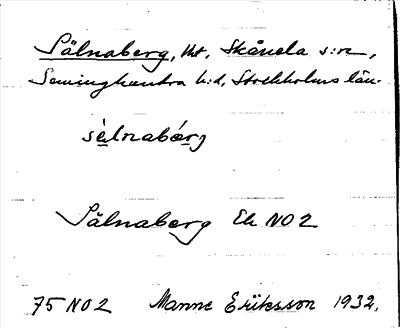 Sälnaberg, tht, Skånela s:n,
Seminghundra h:d, Stockholms län.
sèlnabérj
Sälnaberg Ek NO2
75 NO2 Manne Eriksson 1932.